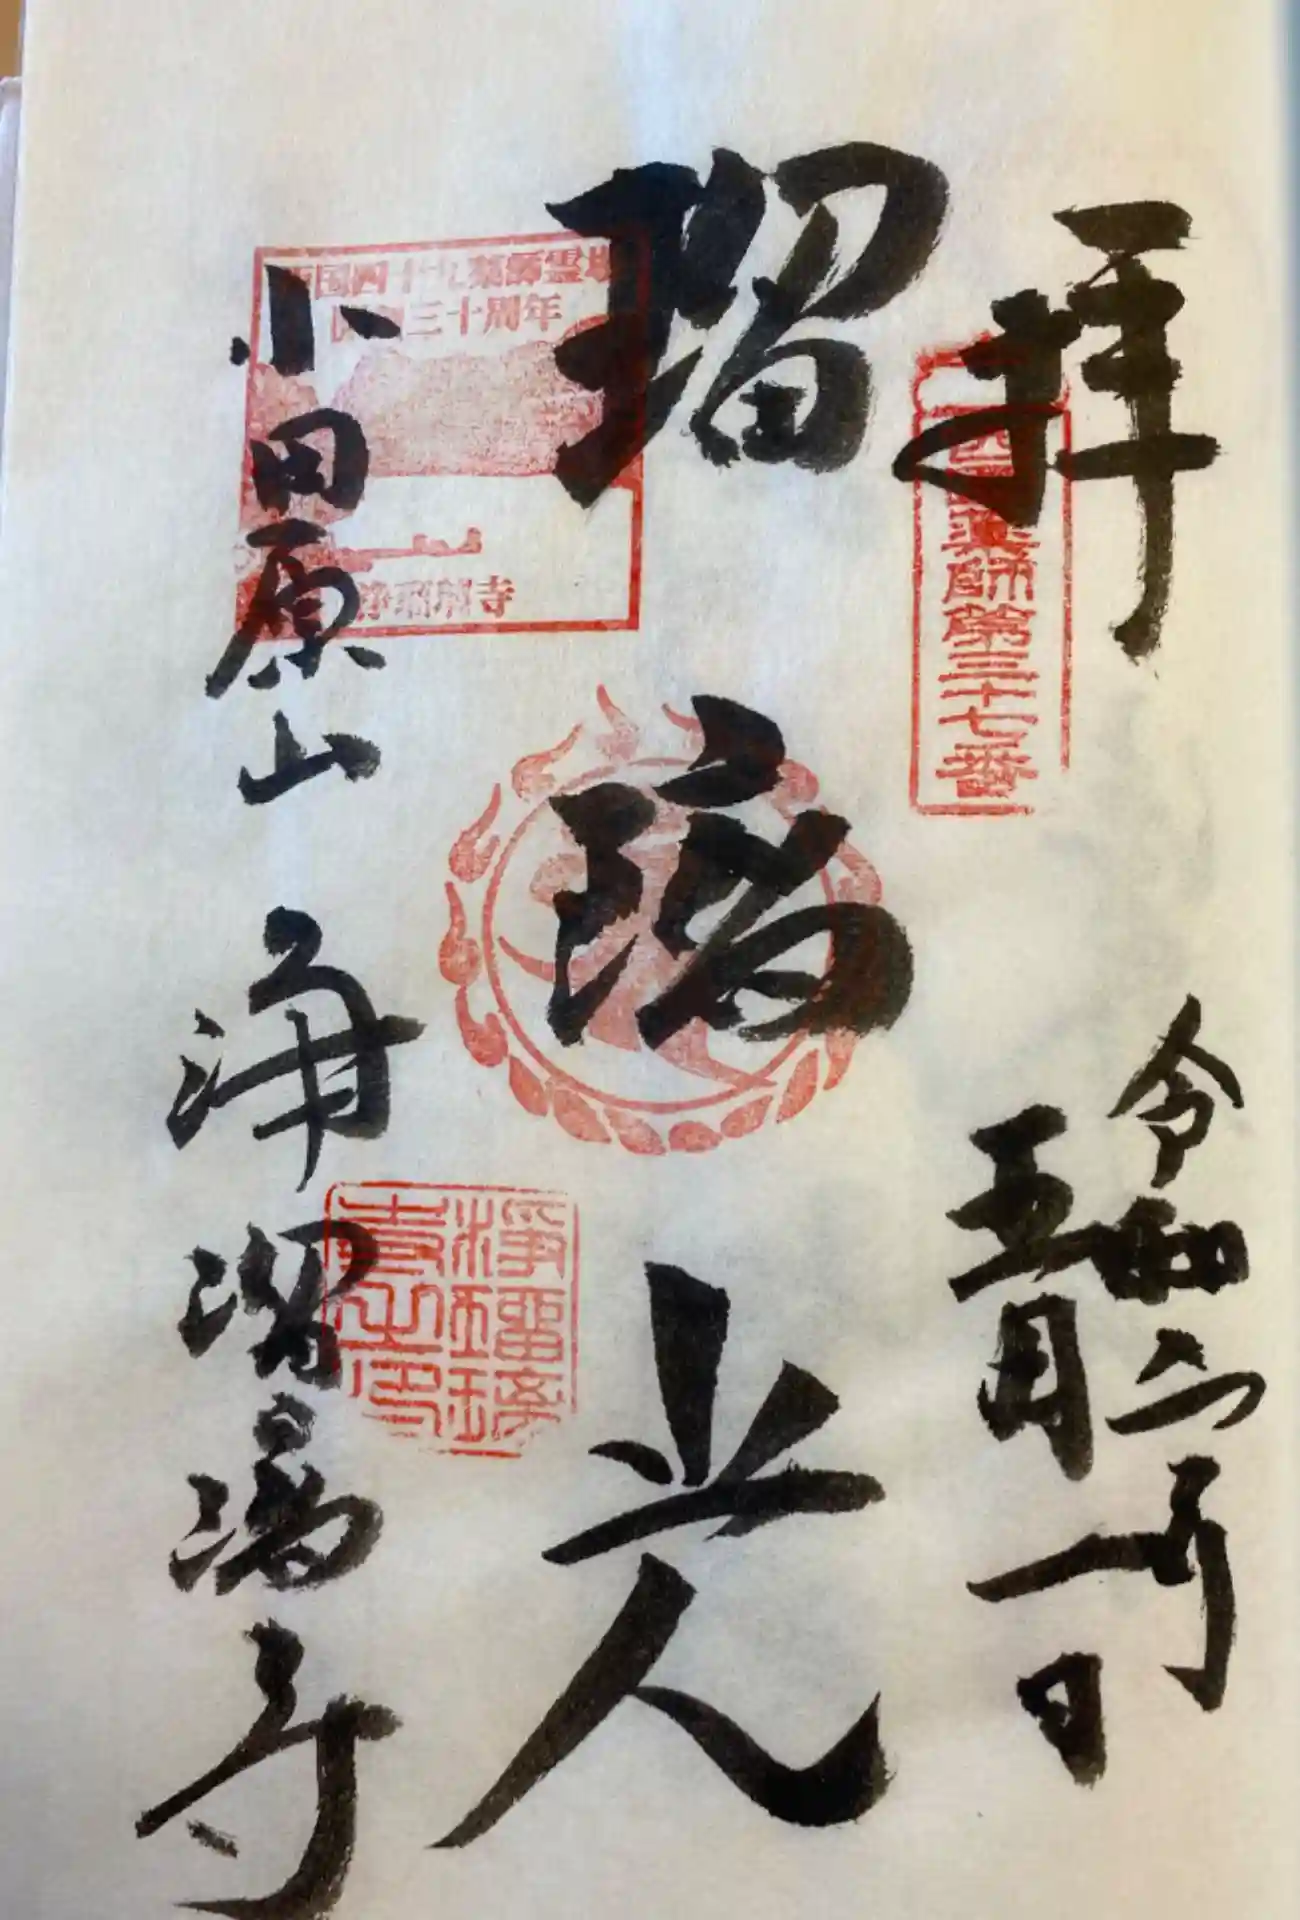 拝
西国薬師第三十七番
令和元年
五月一日
瑠璃光
西国四十九薬師霊場
開創三十周年
浄瑠璃寺
小田原山 浄瑠璃寺
浄瑠璃
寺之印